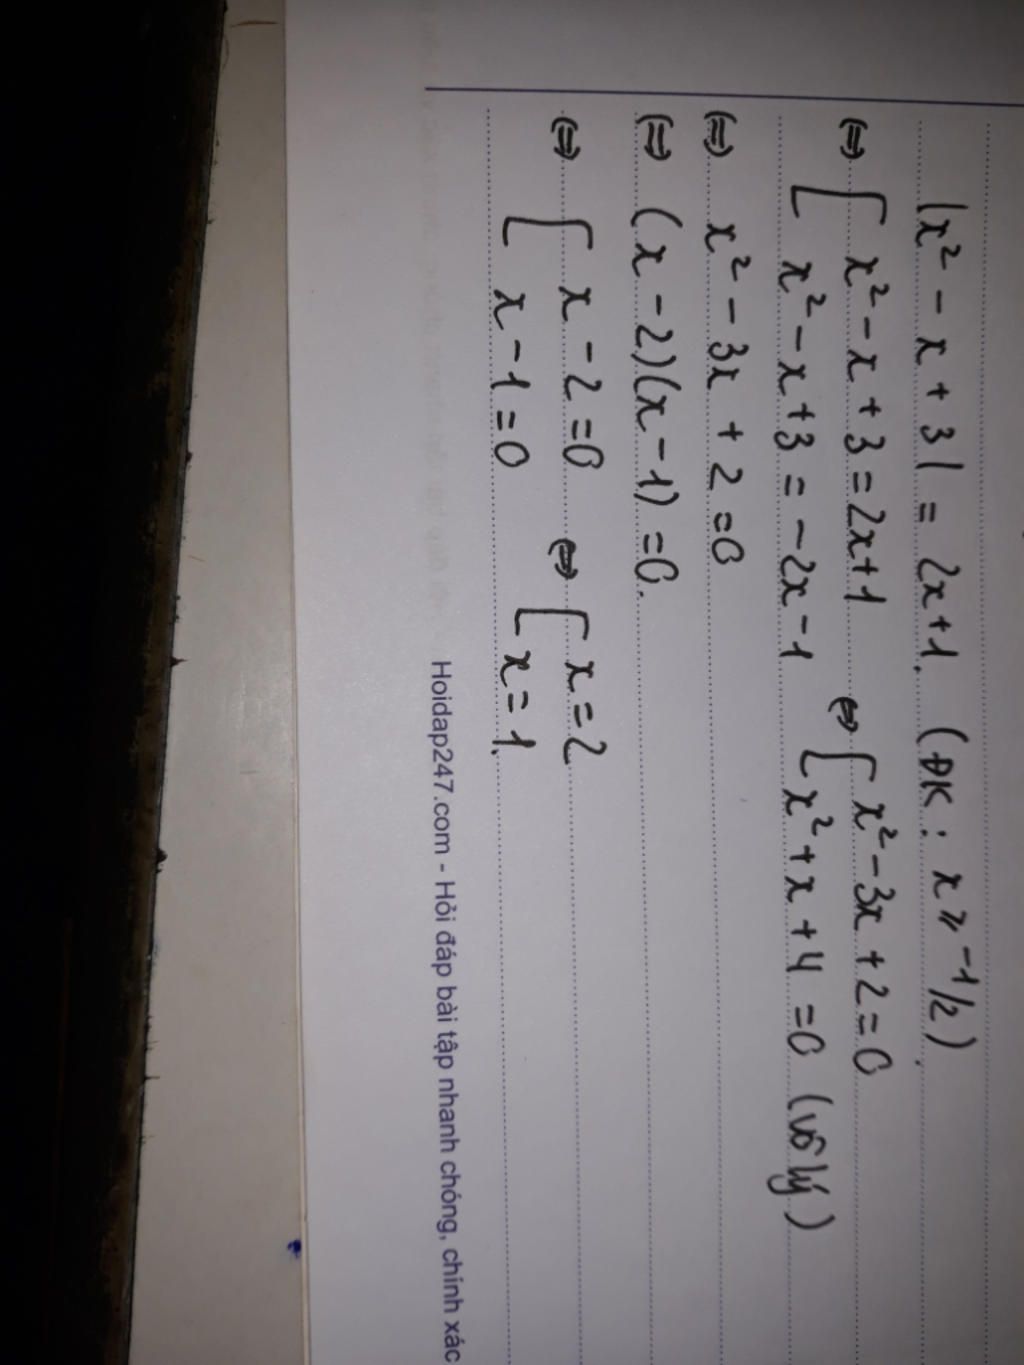 |x² - x + 3| = 2x+1. (ĐK: x ≥ -1/2)
⇔ [ x² - x + 3 = 2x+1 ⇔ [ x² - 3x + 2 = 0
x² - x + 3 = -2x - 1 x² + x + 4 = 0 (vô lý)
⇔ x² - 3x + 2 = 0
⇔ (x - 2)(x - 1) = 0.
⇔ [ x - 2 = 0 ⇔ [ x = 2
x - 1 = 0 x = 1.
Hoidap247.com - Hỏi đáp bài tập nhanh chóng, chính xác